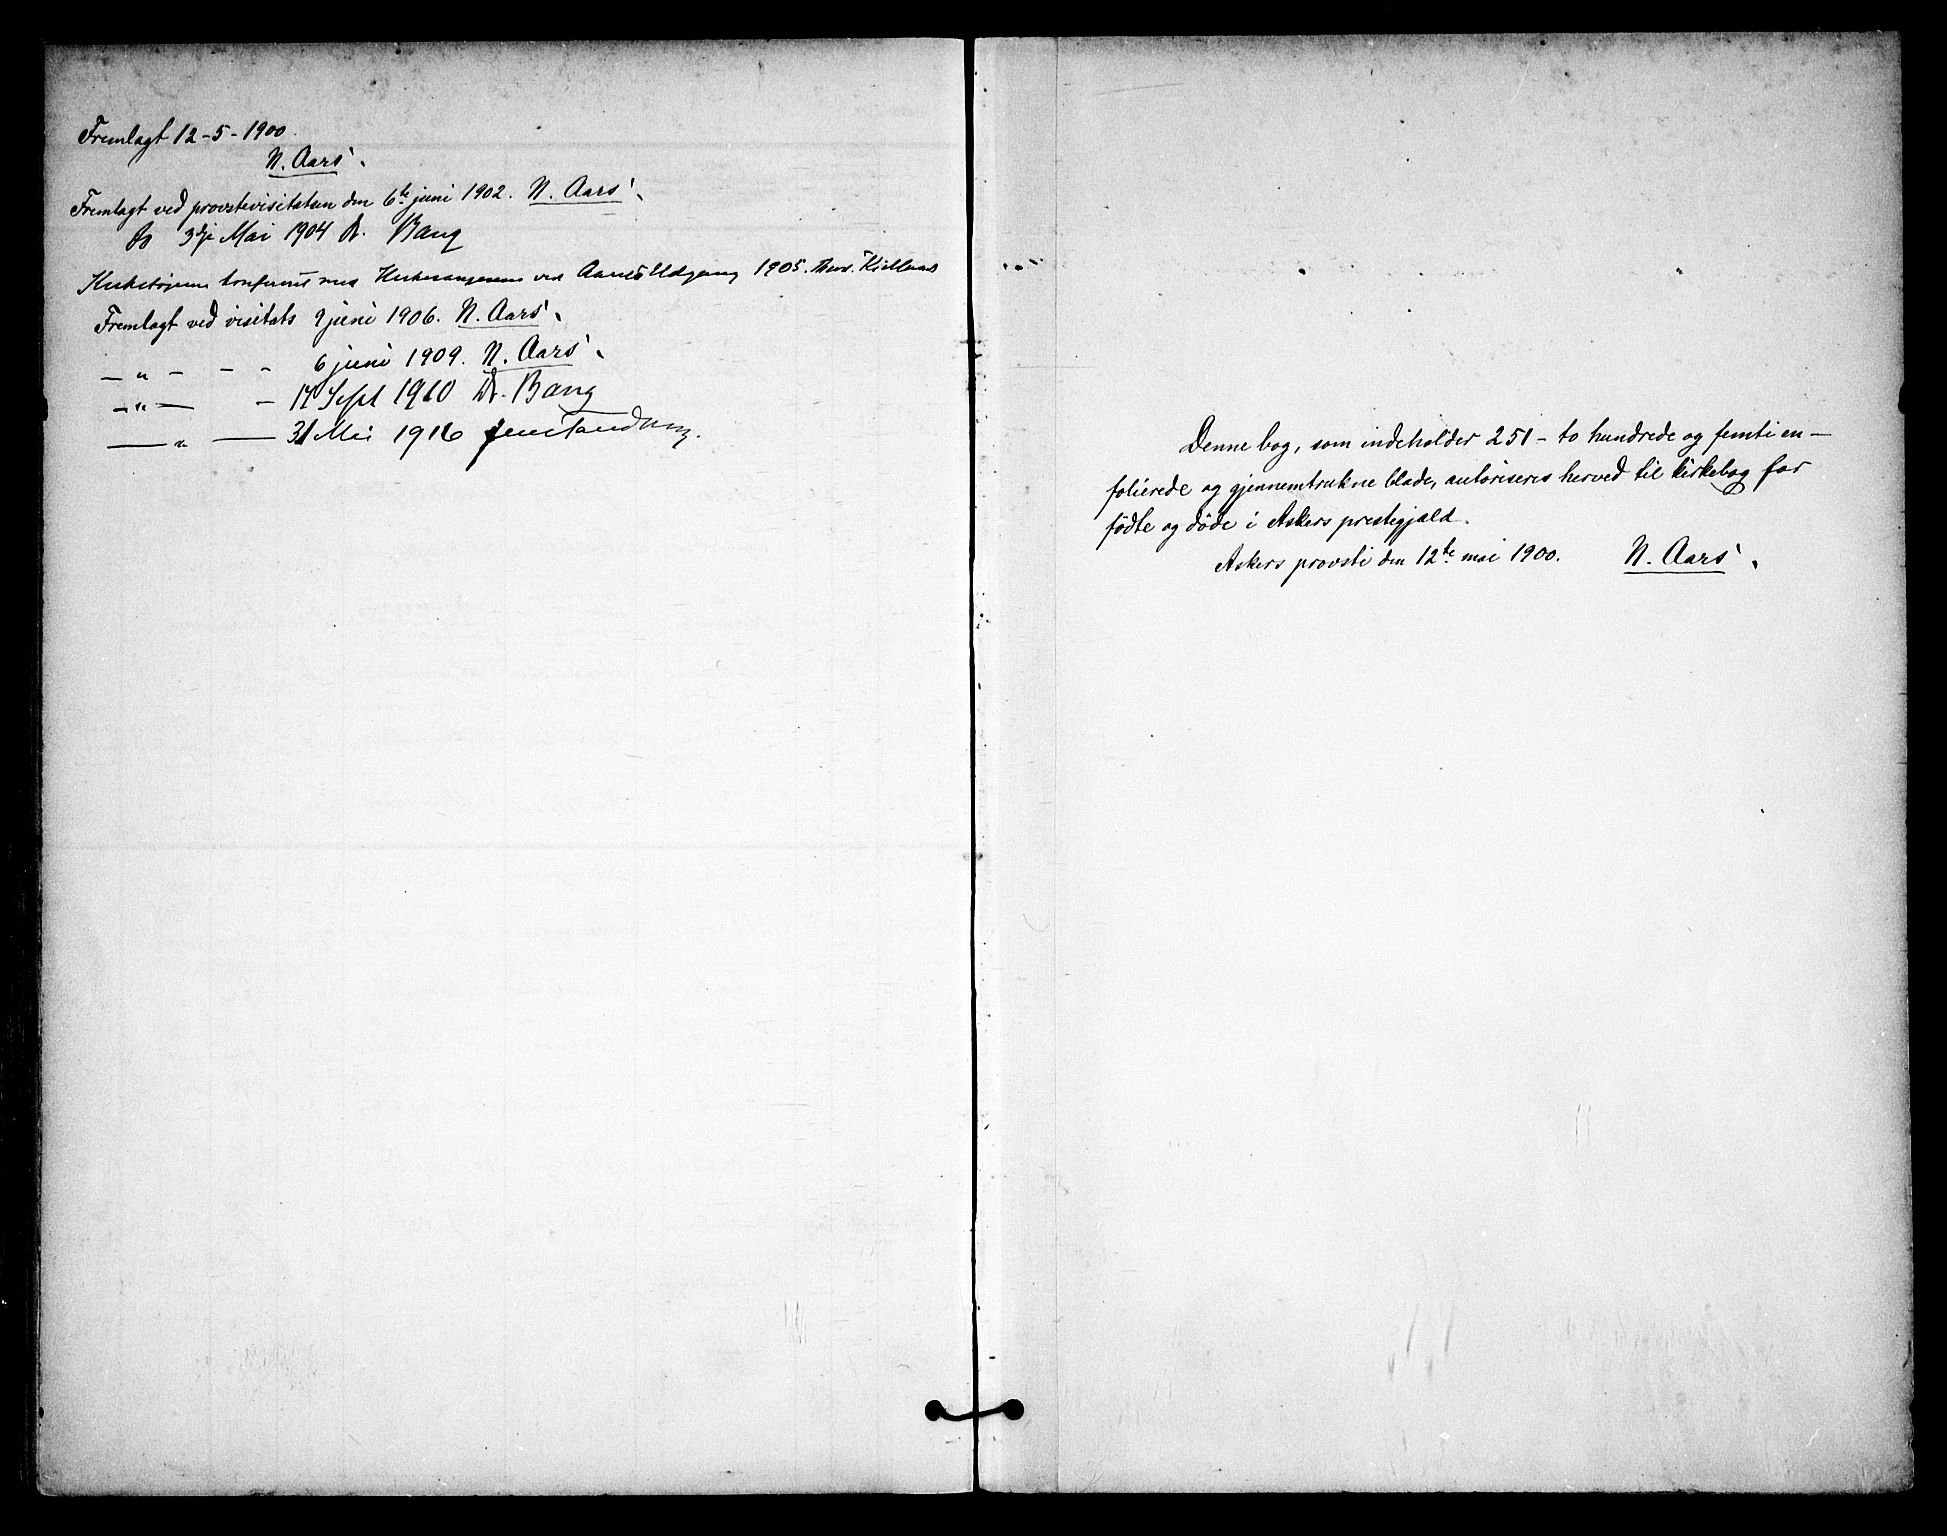 Fremlagt 12-5-1900.
N. Aars.
Fremlagt ved provstevisitatsen den 6te juni 1902. N. Aars.
Do 3die Mai 1904 Dr. Bang
ved Aarets Udgang 1905. Kielland
Fremlagt ved visitats 9 juni 1906. N. Aars.
— " — — — 6 juni 1909. N. Aars.
— " — — 17 Sept 1910 Dr. Bang
— " — 31 Mai 1916 Jens Tandberg.
Denne bog, som indeholder 251 - to hundrede og femti en -
folierede og gjennemtrukne blade, autoriseres herved til kirkebog for
fødte og døde i Askers prestegjæld.
Askers provsti den 12te mai 1900. N. Aars.